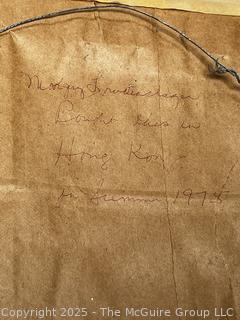 Bought this in
Hong Kong
in Summer 197
Copyright © 2025 - The McGuire Group LLC